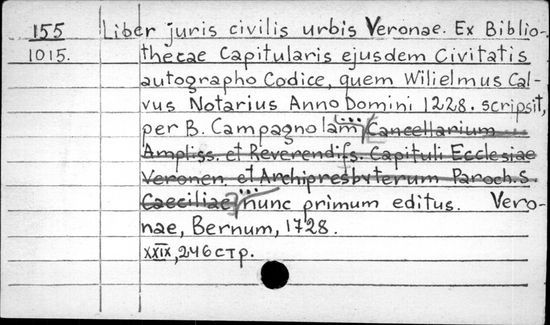 155 Liber juris civilis urbis Veronae. Ex Biblio-
1015. thecae Capitularis ejusdem Civitatis
autographo Codice, quem Wilielmus Cal-
vus Notarius Anno Domini 1228. scripsit,
per B. Campagnolam ... Cancellarium
Ampliss. et Reverendifs. Capituli Ecclesiae
Veronen. et Archipresbyterum Paroch. S.
Caeciliae ... nunc primum editus. Vero-
nae, Bernum, 1728.
XXIX, 246 стр.